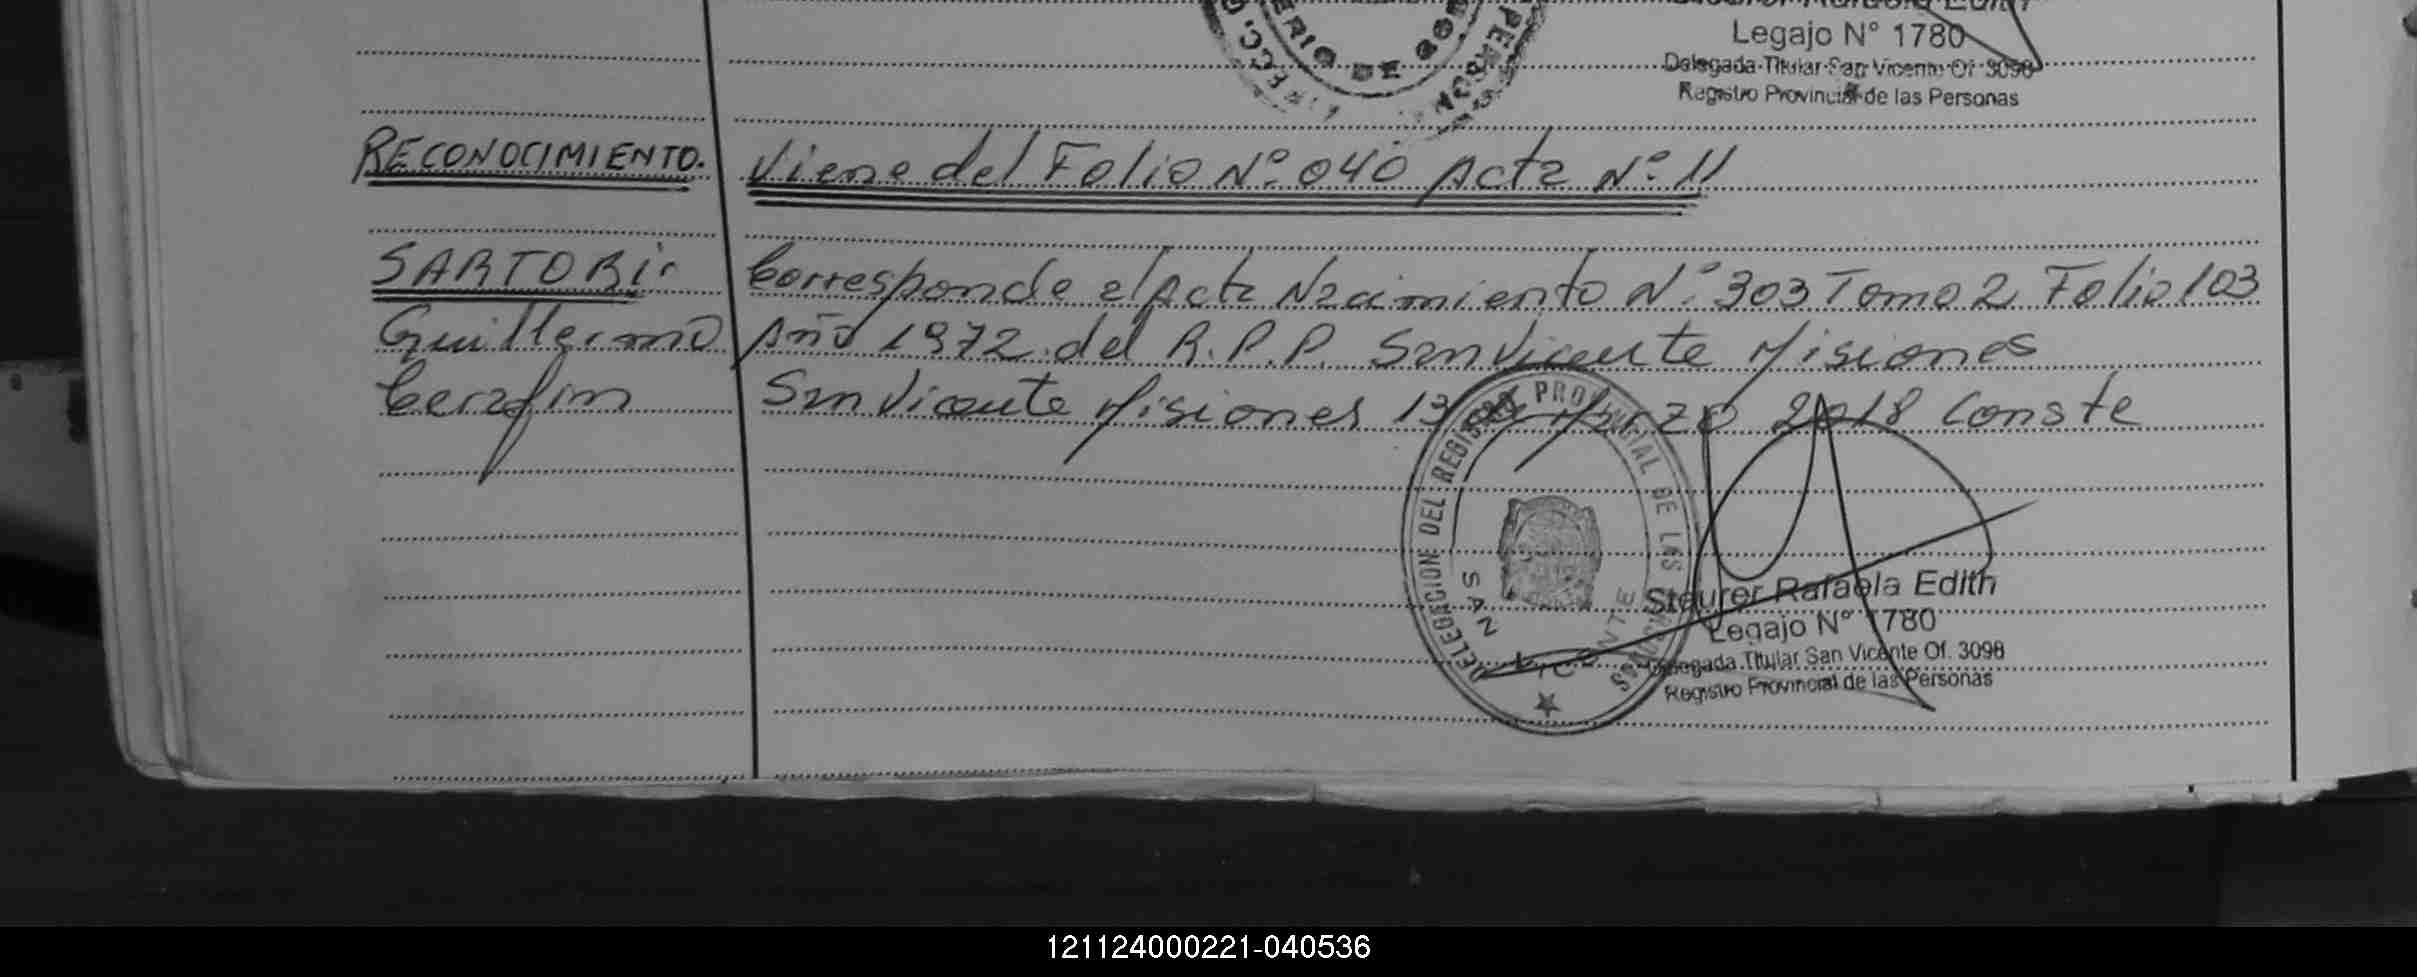 Legajo N° 1780
Delegada Titular San Vicente Of. 3098
Registro Provincial de las Personas
RECONOCIMIENTO. Viene del Folio N° 040 Acta N° 11
SARTORI: Corresponde al Acta Nacimiento N° 303 Tomo 2 Folio 103
Guillermo Año 1972 del R.P.P. San Vicente Misiones
Cerafim San Vicente Misiones 13 de Marzo 2018 Conste
DELEGACION DEL REGISTRO PROVINCIAL DE LAS PERSONAS
SAN VICENTE
Steurer Rafaela Edith
Legajo N° 1780
Delegada Titular San Vicente Of. 3098
Registro Provincial de las Personas
121124000221-040536